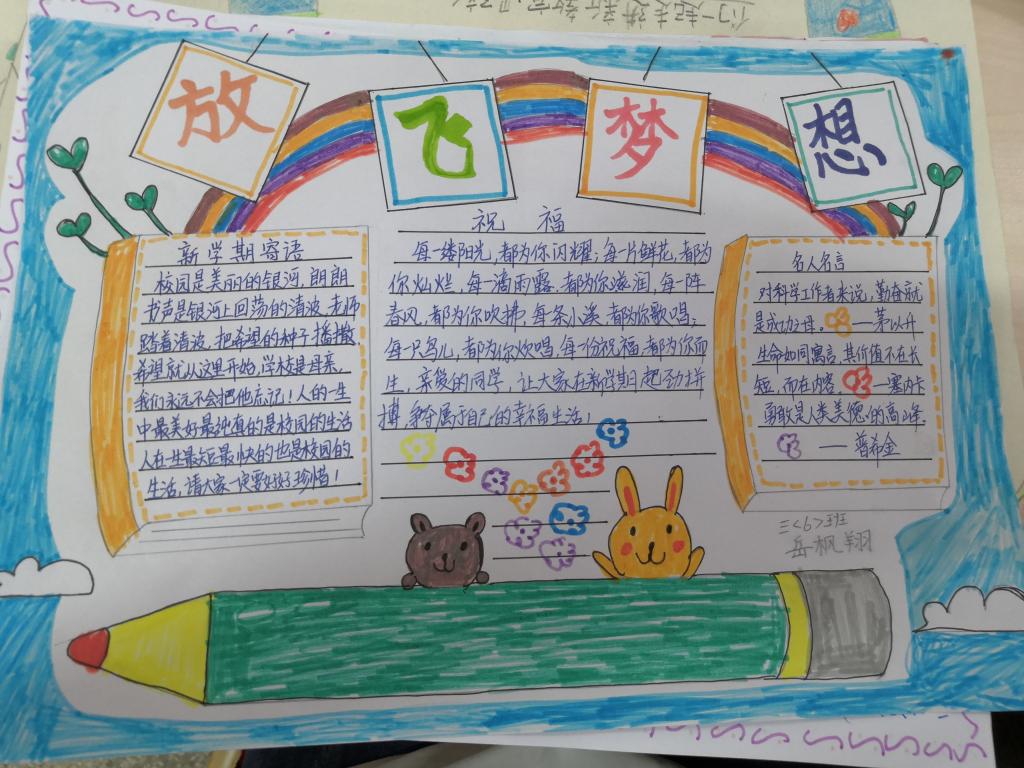 放飞梦想
新学期寄语
校园是美丽的银河，朗朗
书声是银河上回荡的清波，老师
踏着清波，把希望的种子播撒，
希望就从这里开始，学校是母亲，
我们永远不会把他忘记！人的一生
中最美好最纯真的是校园的生活
人在一生最短最快的也是校园的
生活，请大家一定要好好珍惜！
祝福
每一缕阳光，都为你闪耀；每一片鲜花，都为
你灿烂，每一滴雨露，都为你滋润，每一阵
春风，都为你吹拂，每条小溪，都为你歌唱；
每一只鸟儿，都为你欢唱，每一份祝福，都为你而
生，亲爱的同学，让大家在新学期起劲拼
搏，争夺属于自己的幸福生活！
名人名言
对科学工作者来说，勤奋就
是成功之母。——茅以升
生命如同寓言，其价值不在长
短，而在内容。——塞内卡
勇敢是人类美德的高峰。
——普希金
三<6>班
岳枫翔